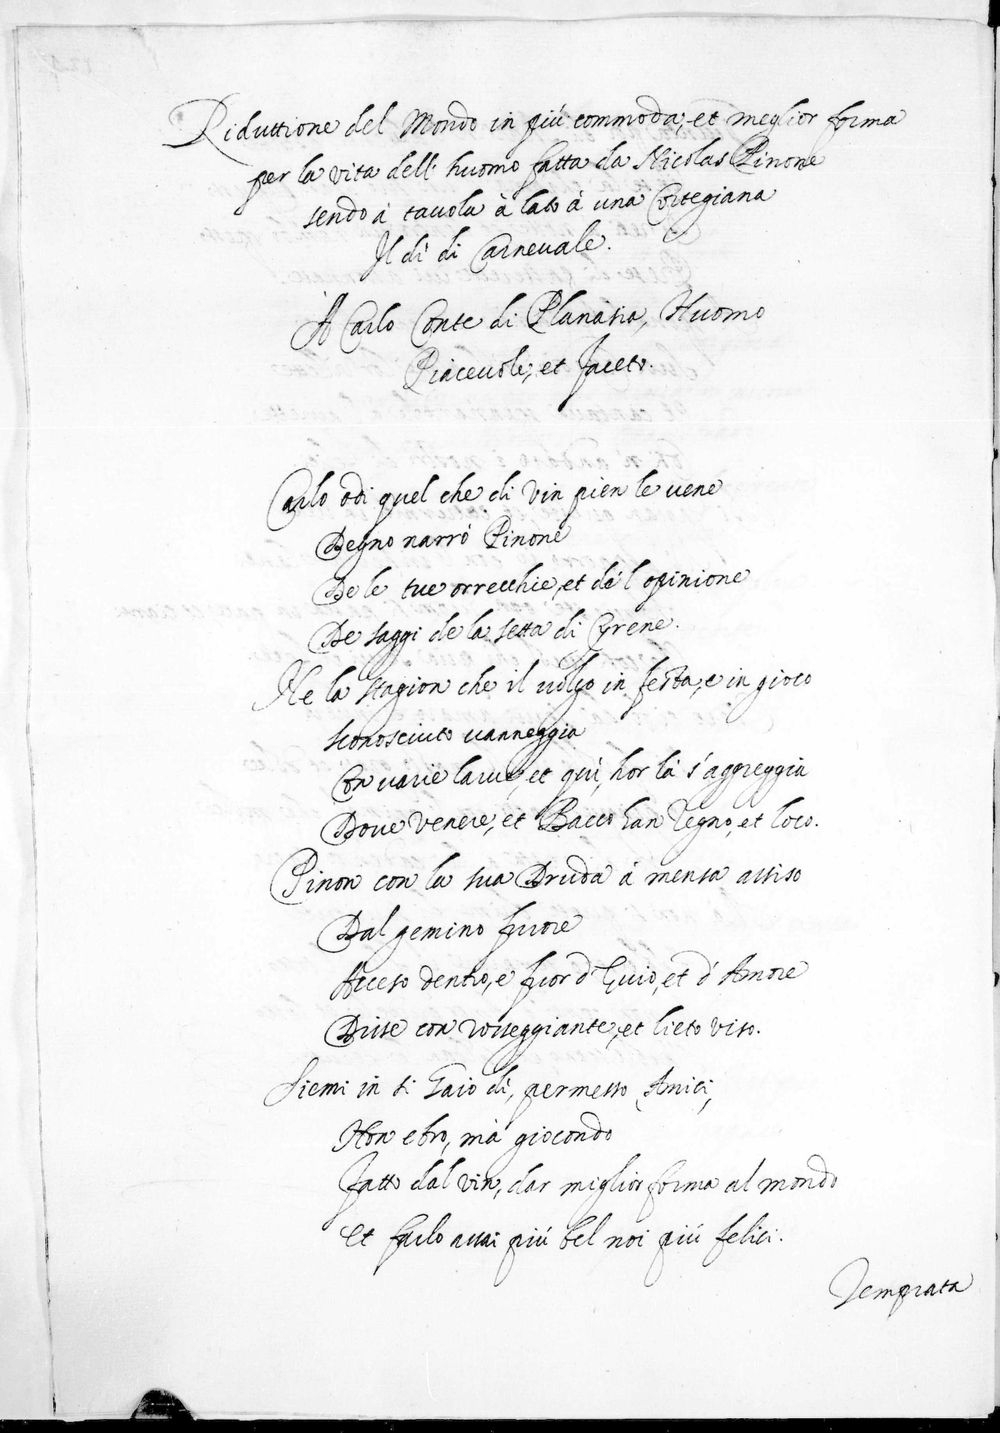 Riduttione del Mondo in più commoda, et meglior forma
per la vita dell' huomo fatta da Nicolas Pinone
sendo à tavola à lato à una Cortegiana
Il dì di Carnevale.
A Carlo Conte di Planasia, Huomo
Piacevole, et faceto.
Carlo odi quel che di vin pien le vene
Degno narrò Pinone
De le tue orrecchie, et dà l opinione
De saggi de la setta di Cyrene.
Ne la stagion che il vulgo in festa, e in gioco
sconosciuto vanneggia
Con varie larve, et quì, hor là s'aggreggia
Dove Venere, et Bacco han regno, et loco.
Pinon con la sua Druda à mensa assiso
Dal gemino furore
Acceso dentro, e fuor d' Evio, et d' Amore
Disse con rosseggiante, et lieto viso.
Siemi in si Gaio dì, permesso Amici,
Non ebro, mà giocondo
Fatto dal vin, dar miglior forma al mondo
Et farlo assai più bel noi più felici.
Temprata